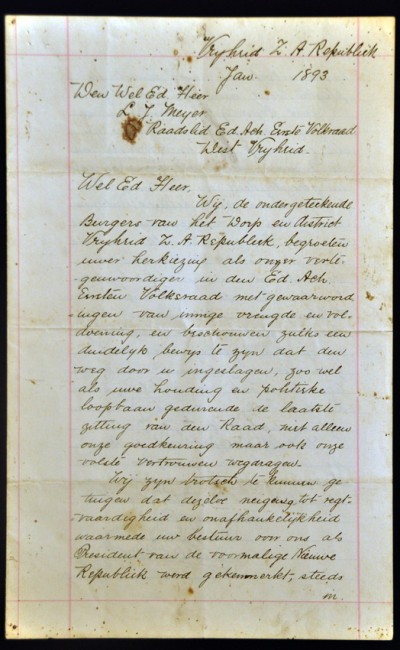 Vryheid Z. A. Republiek
Jan. 1893
Den Wel Ed. Heer
L. J. Meyer
Raadslid Ed. Ach. Eerste Volksraad
West Vryheid.
Wel Ed Heer.
Wij, de ondergeteekende
Burgers van het Dorp en district
Vryheid Z. A. Republiek, begroeten
uwer herkiezing als onzer verte-
genwoordiger in den Ed. Ach.
Eersten Volksraad met gewaarword
ingen van innige vreugde en vol-
doening, en beschouwen zulks een
duidelyk bewys te zyn dat den
weg door u ingeslagen, zoo wel
als uwe houding en politieke
loopbaan gedurende de laatste
zitting van den Raad, niet alleen
onze goedkeuring maar ook onze
volste vertrouwen wegdragen.
Wij zyn trotsch te kunnen ge
tuigen dat dezelve neiging tot regt-
vaardigheid en onafhankelijkheid
waarmede uw bestuur over ons als
President van de voormalige Nieuwe
Republiek werd gekenmerkt, steeds